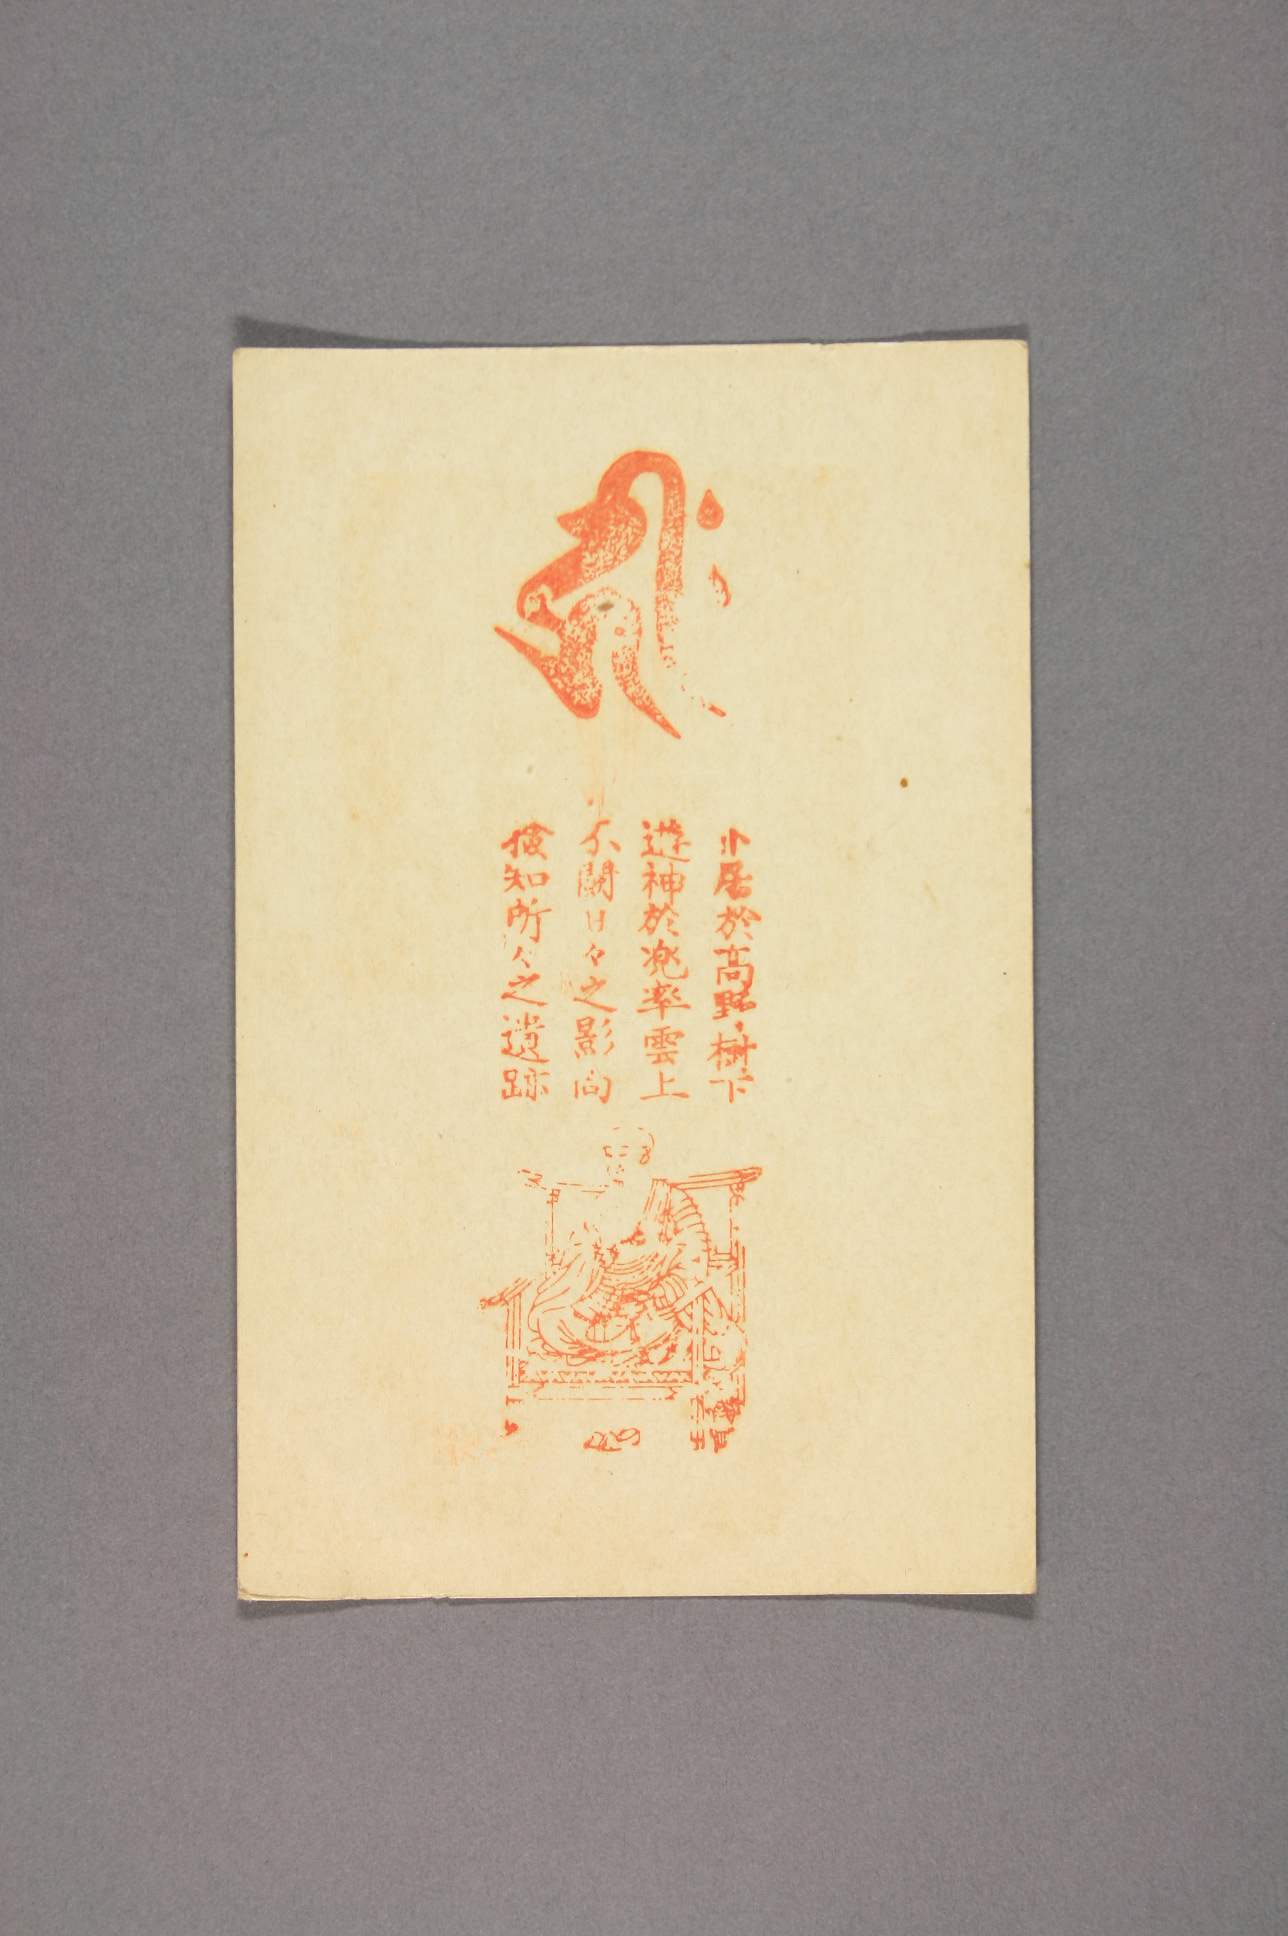 卜居於高野樹下
遊神於兜率雲上
不闕日々之影向
検知所々之遺跡